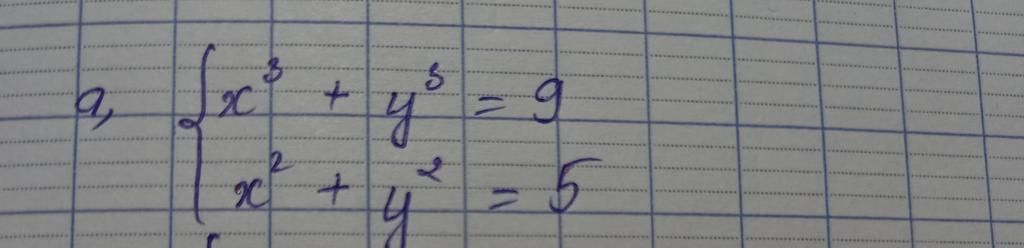 a, x³ + y³ = 9
x² + y² = 5